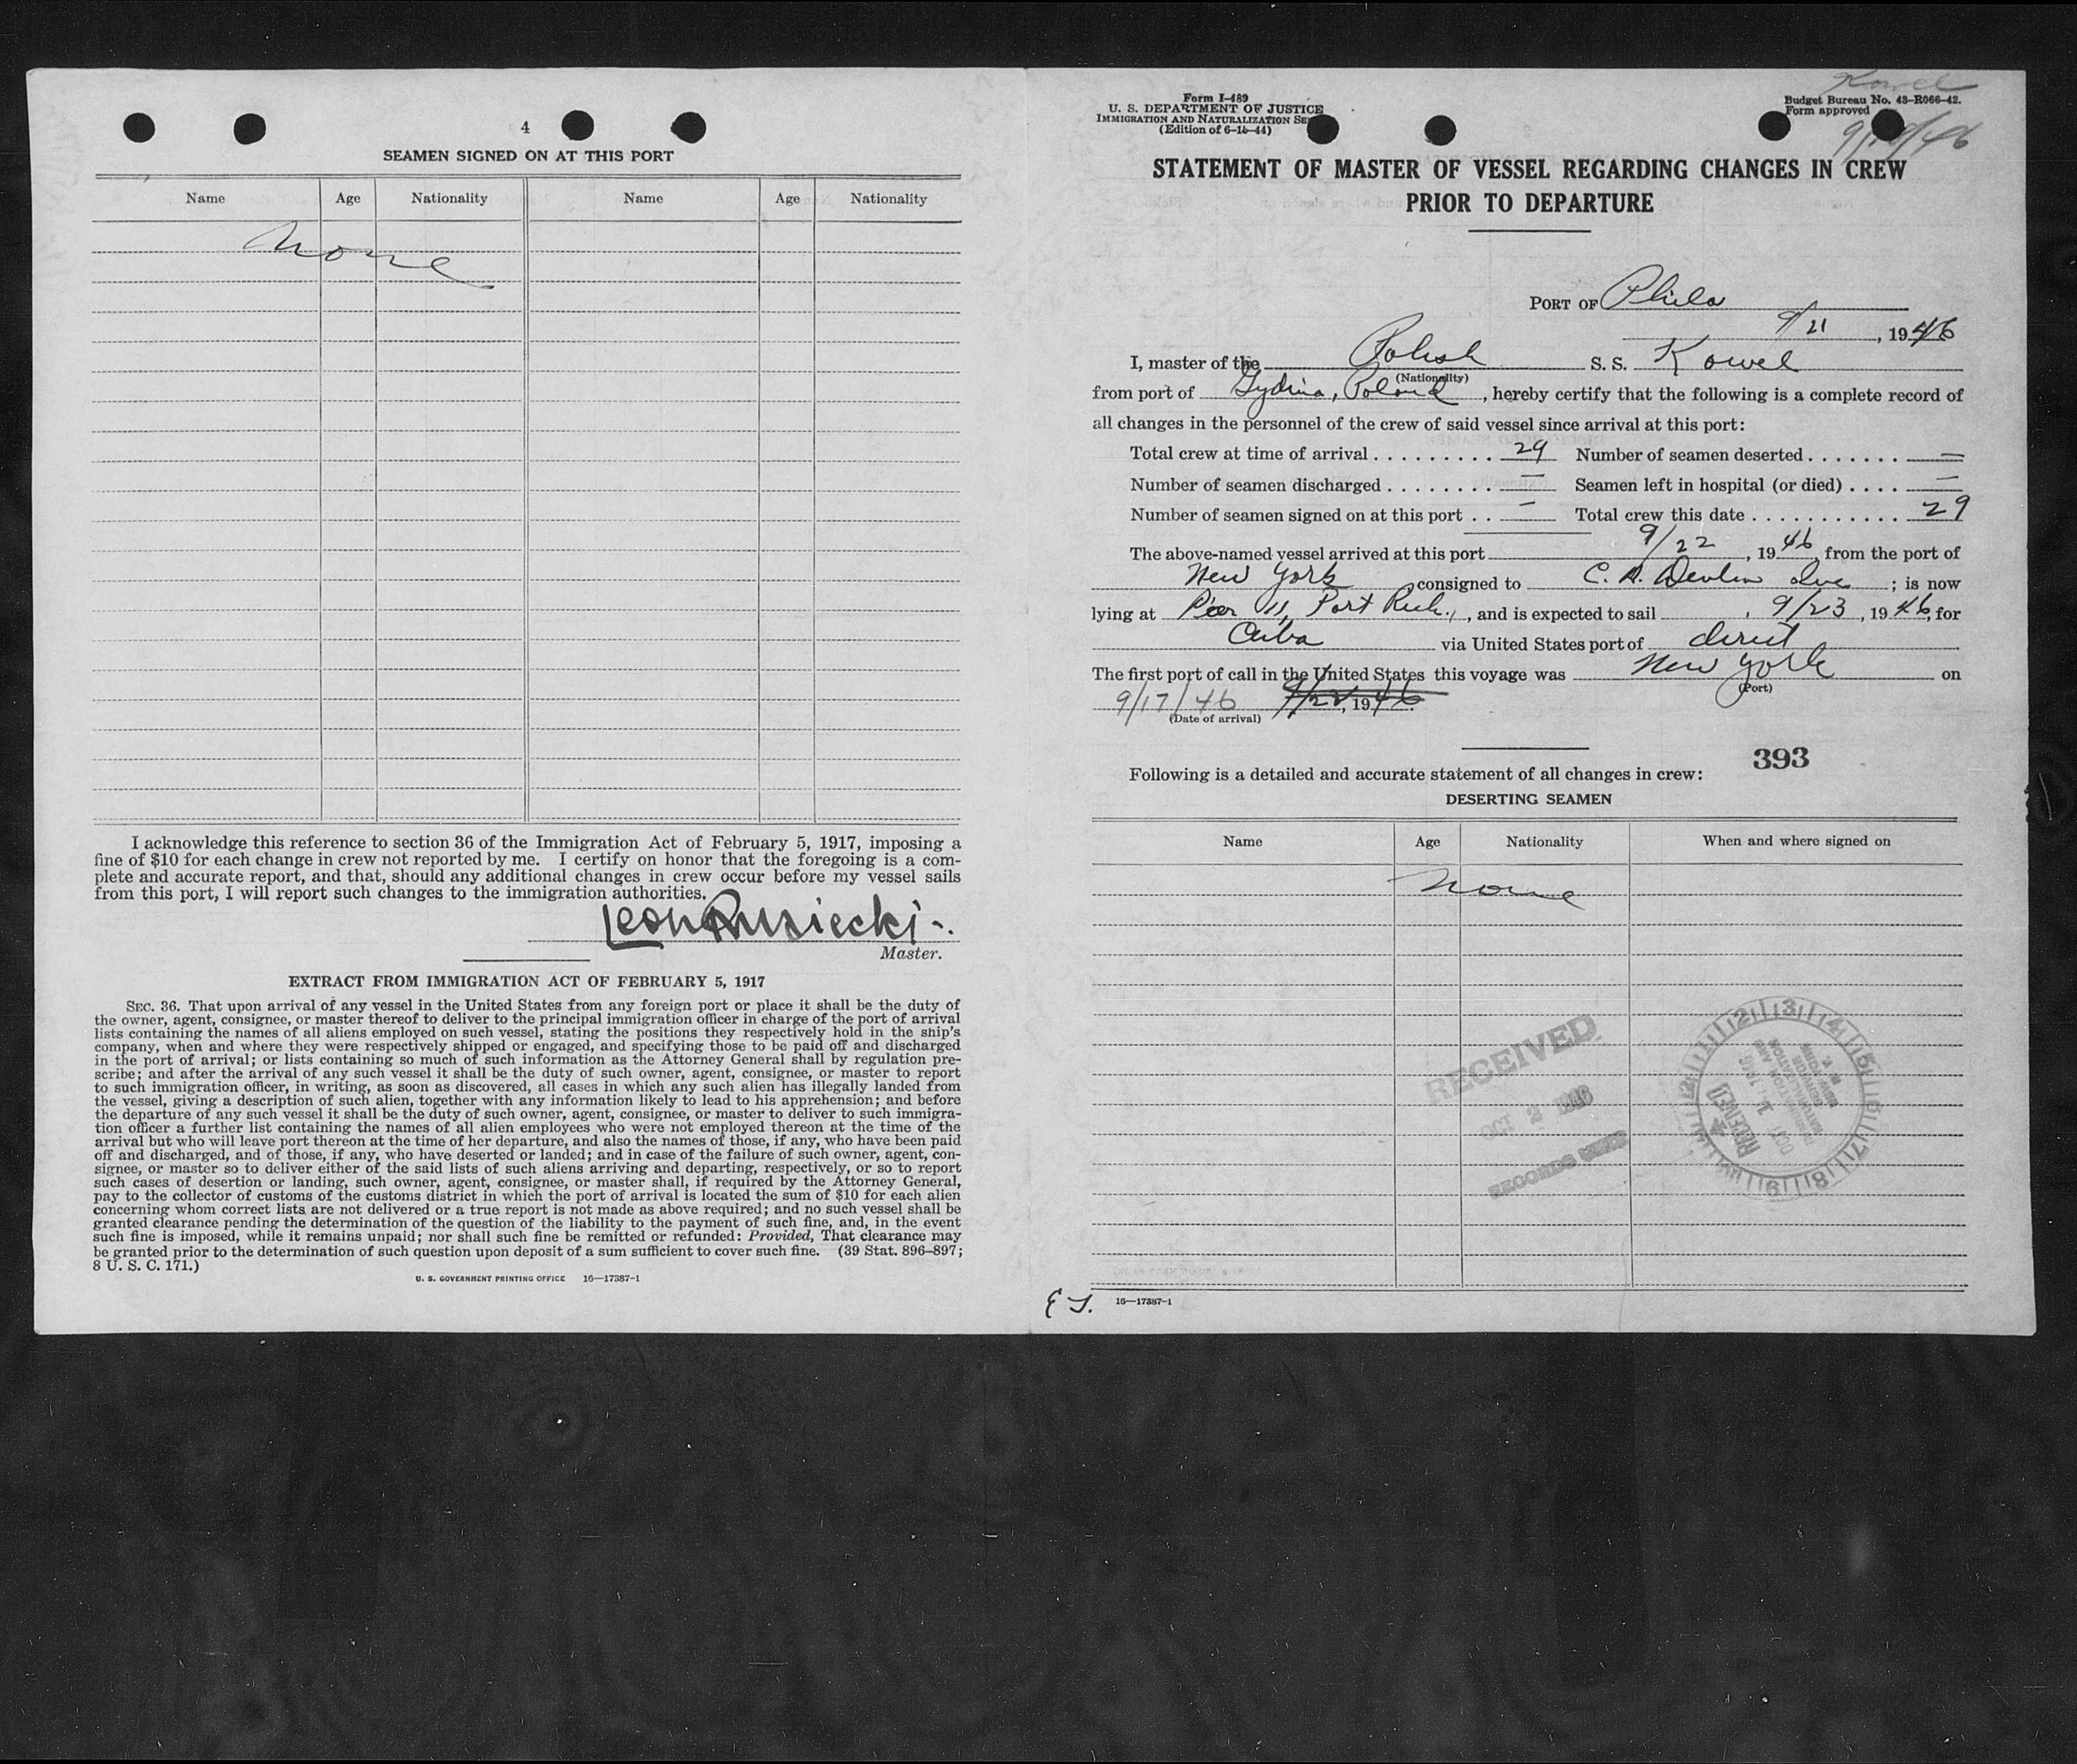 4
SEAMEN SIGNED ON AT THIS PORT
Name Age Nationality Name Age Nationality
None
I acknowledge this reference to section 36 of the Immigration Act of February 5, 1917, imposing a
fine of $10 for each change in crew not reported by me. I certify on honor that the foregoing is a com-
plete and accurate report, and that, should any additional changes in crew occur before my vessel sails
from this port, I will report such changes to the immigration authorities.
Leon Rusiecki
Master.
EXTRACT FROM IMMIGRATION ACT OF FEBRUARY 5, 1917
SEC. 36. That upon arrival of any vessel in the United States from any foreign port or place it shall be the duty of
the owner, agent, consignee, or master thereof to deliver to the principal immigration officer in charge of the port of arrival
lists containing the names of all aliens employed on such vessel, stating the positions they respectively hold in the ship's
company, when and where they were respectively shipped or engaged, and specifying those to be paid off and discharged
in the port of arrival; or lists containing so much of such information as the Attorney General shall by regulation pre-
scribe; and after the arrival of any such vessel it shall be the duty of such owner, agent, consignee, or master to report
to such immigration officer, in writing, as soon as discovered, all cases in which any such alien has illegally landed from
the vessel, giving a description of such alien, together with any information likely to lead to his apprehension; and before
the departure of any such vessel it shall be the duty of such owner, agent, consignee, or master to deliver to such immigra-
tion officer a further list containing the names of all alien employees who were not employed thereon at the time of the
arrival but who will leave port thereon at the time of her departure, and also the names of those, if any, who have been paid
off and discharged, and of those, if any, who have deserted or landed; and in case of the failure of such owner, agent, con-
signee, or master so to deliver either of the said lists of such aliens arriving and departing, respectively, or so to report
such cases of desertion or landing, such owner, agent, consignee, or master shall, if required by the Attorney General,
pay to the collector of customs of the customs district in which the port of arrival is located the sum of $10 for each alien
concerning whom correct lists are not delivered or a true report is not made as above required; and no such vessel shall be
granted clearance pending the determination of the question of the liability to the payment of such fine, and, in the event
such fine is imposed, while it remains unpaid; nor shall such fine be remitted or refunded: Provided, That clearance may
be granted prior to the determination of such question upon deposit of a sum sufficient to cover such fine. (39 Stat. 896–897;
8 U. S. C. 171.)
U. S. GOVERNMENT PRINTING OFFICE 16—17387-1
Kowel
Form I-489
U. S. DEPARTMENT OF JUSTICE
IMMIGRATION AND NATURALIZATION SE
(Edition of 6-15-44)
Budget Bureau No. 43-R066-42.
Form approved
STATEMENT OF MASTER OF VESSEL REGARDING CHANGES IN CREW
PRIOR TO DEPARTURE
PORT OF Phila
9/21, 1946
I, master of the Polish S. S. Kowel
(Nationality)
from port of Gydnia, Poland, hereby certify that the following is a complete record of
all changes in the personnel of the crew of said vessel since arrival at this port:
Total crew at time of arrival 29 Number of seamen deserted —
Number of seamen discharged — Seamen left in hospital (or died) —
Number of seamen signed on at this port — Total crew this date 29
The above-named vessel arrived at this port 9/22, 1946 from the port of
New York consigned to C. A. Devlin Inc; is now
lying at Pier 11, Port Rich., and is expected to sail 9/23, 1946, for
Cuba via United States port of direct
The first port of call in the United States this voyage was New York on
(Port)
9/17/46 9/22, 1946
(Date of arrival)
393
Following is a detailed and accurate statement of all changes in crew:
DESERTING SEAMEN
Name Age Nationality When and where signed on
None
RECEIVED
OCT 2 1946
RECORDS UNIT
RECEIVED
OCT 1 1946
16—17387-1